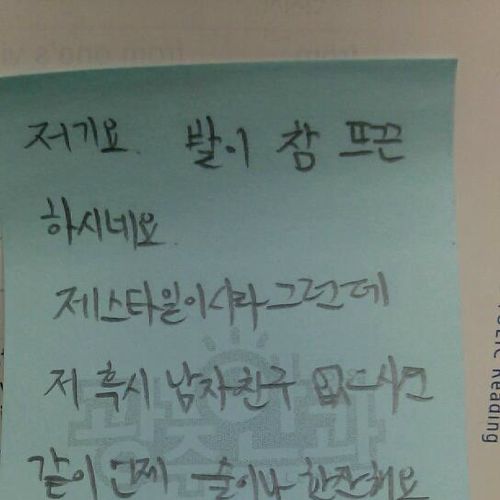 저기요. 발이 참 뜨끈
하시네요.
제스타일이시라그런데
저 혹시 남자친구 없으시면
같이 언제 술이나 한잔해요
Reading